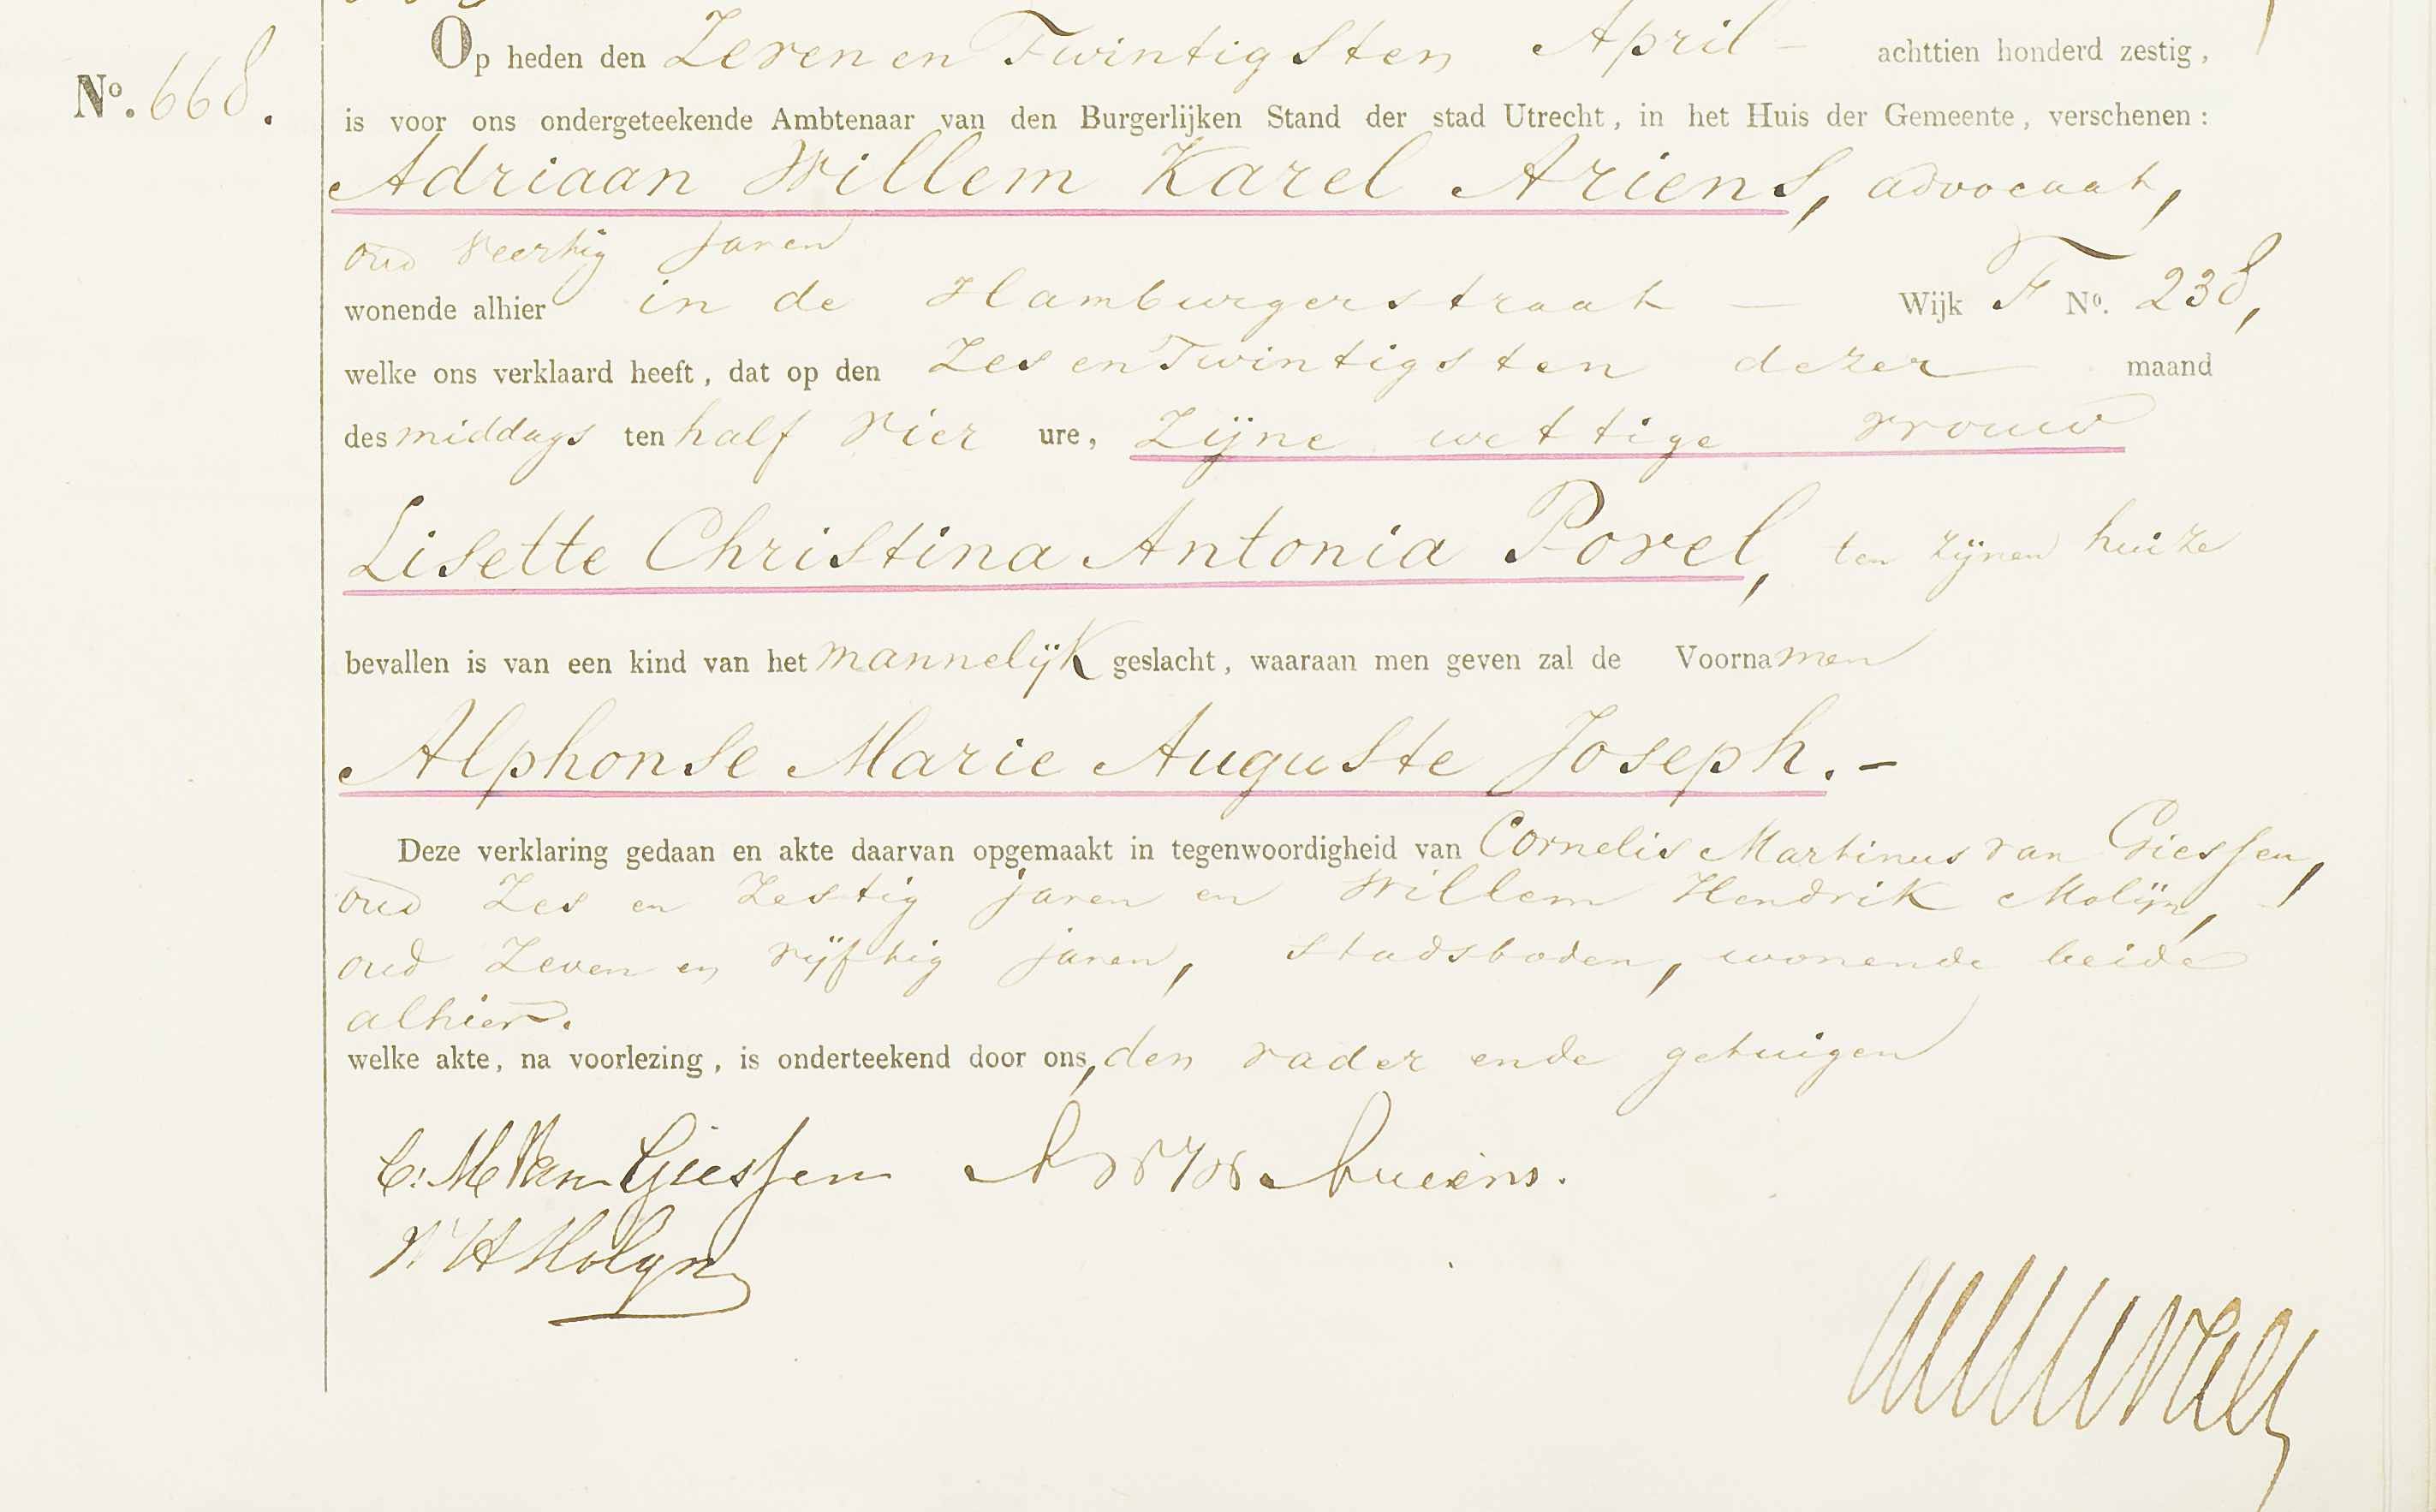 Op heden den Zevenen Twintigsten April – achttien honderd zestig,
No. 668.
is voor ons ondergeteekende Ambtenaar van den Burgerlijken Stand der stad Utrecht, in het Huis der Gemeente, verschenen:
Adriaan Willem Karel Ariens, advocaat,
oud veertig jaren
wonende alhier in de Hamburgerstraat — Wijk F No. 238,
welke ons verklaard heeft, dat op den Zes en Twintigsten dezer maand
des middags ten half vier ure, Zijne wettige vrouw
Lisette Christina Antonia Povel, ten zijnen huize
bevallen is van een kind van het mannelijk geslacht, waaraan men geven zal de Voornamen
Alphonse Marie Auguste Joseph. –
Deze verklaring gedaan en akte daarvan opgemaakt in tegenwoordigheid van Cornelis Martinus van Giessen,
oud Zes en Zestig jaren en Willem Hendrik Molijn,
oud Zeven en vijftig jaren, stadsboden, wonende beide
alhier.
welke akte, na voorlezing, is onderteekend door ons, den vader ende getuigen
C: M Van Giessen A W K Ariëns.
W H Molyn